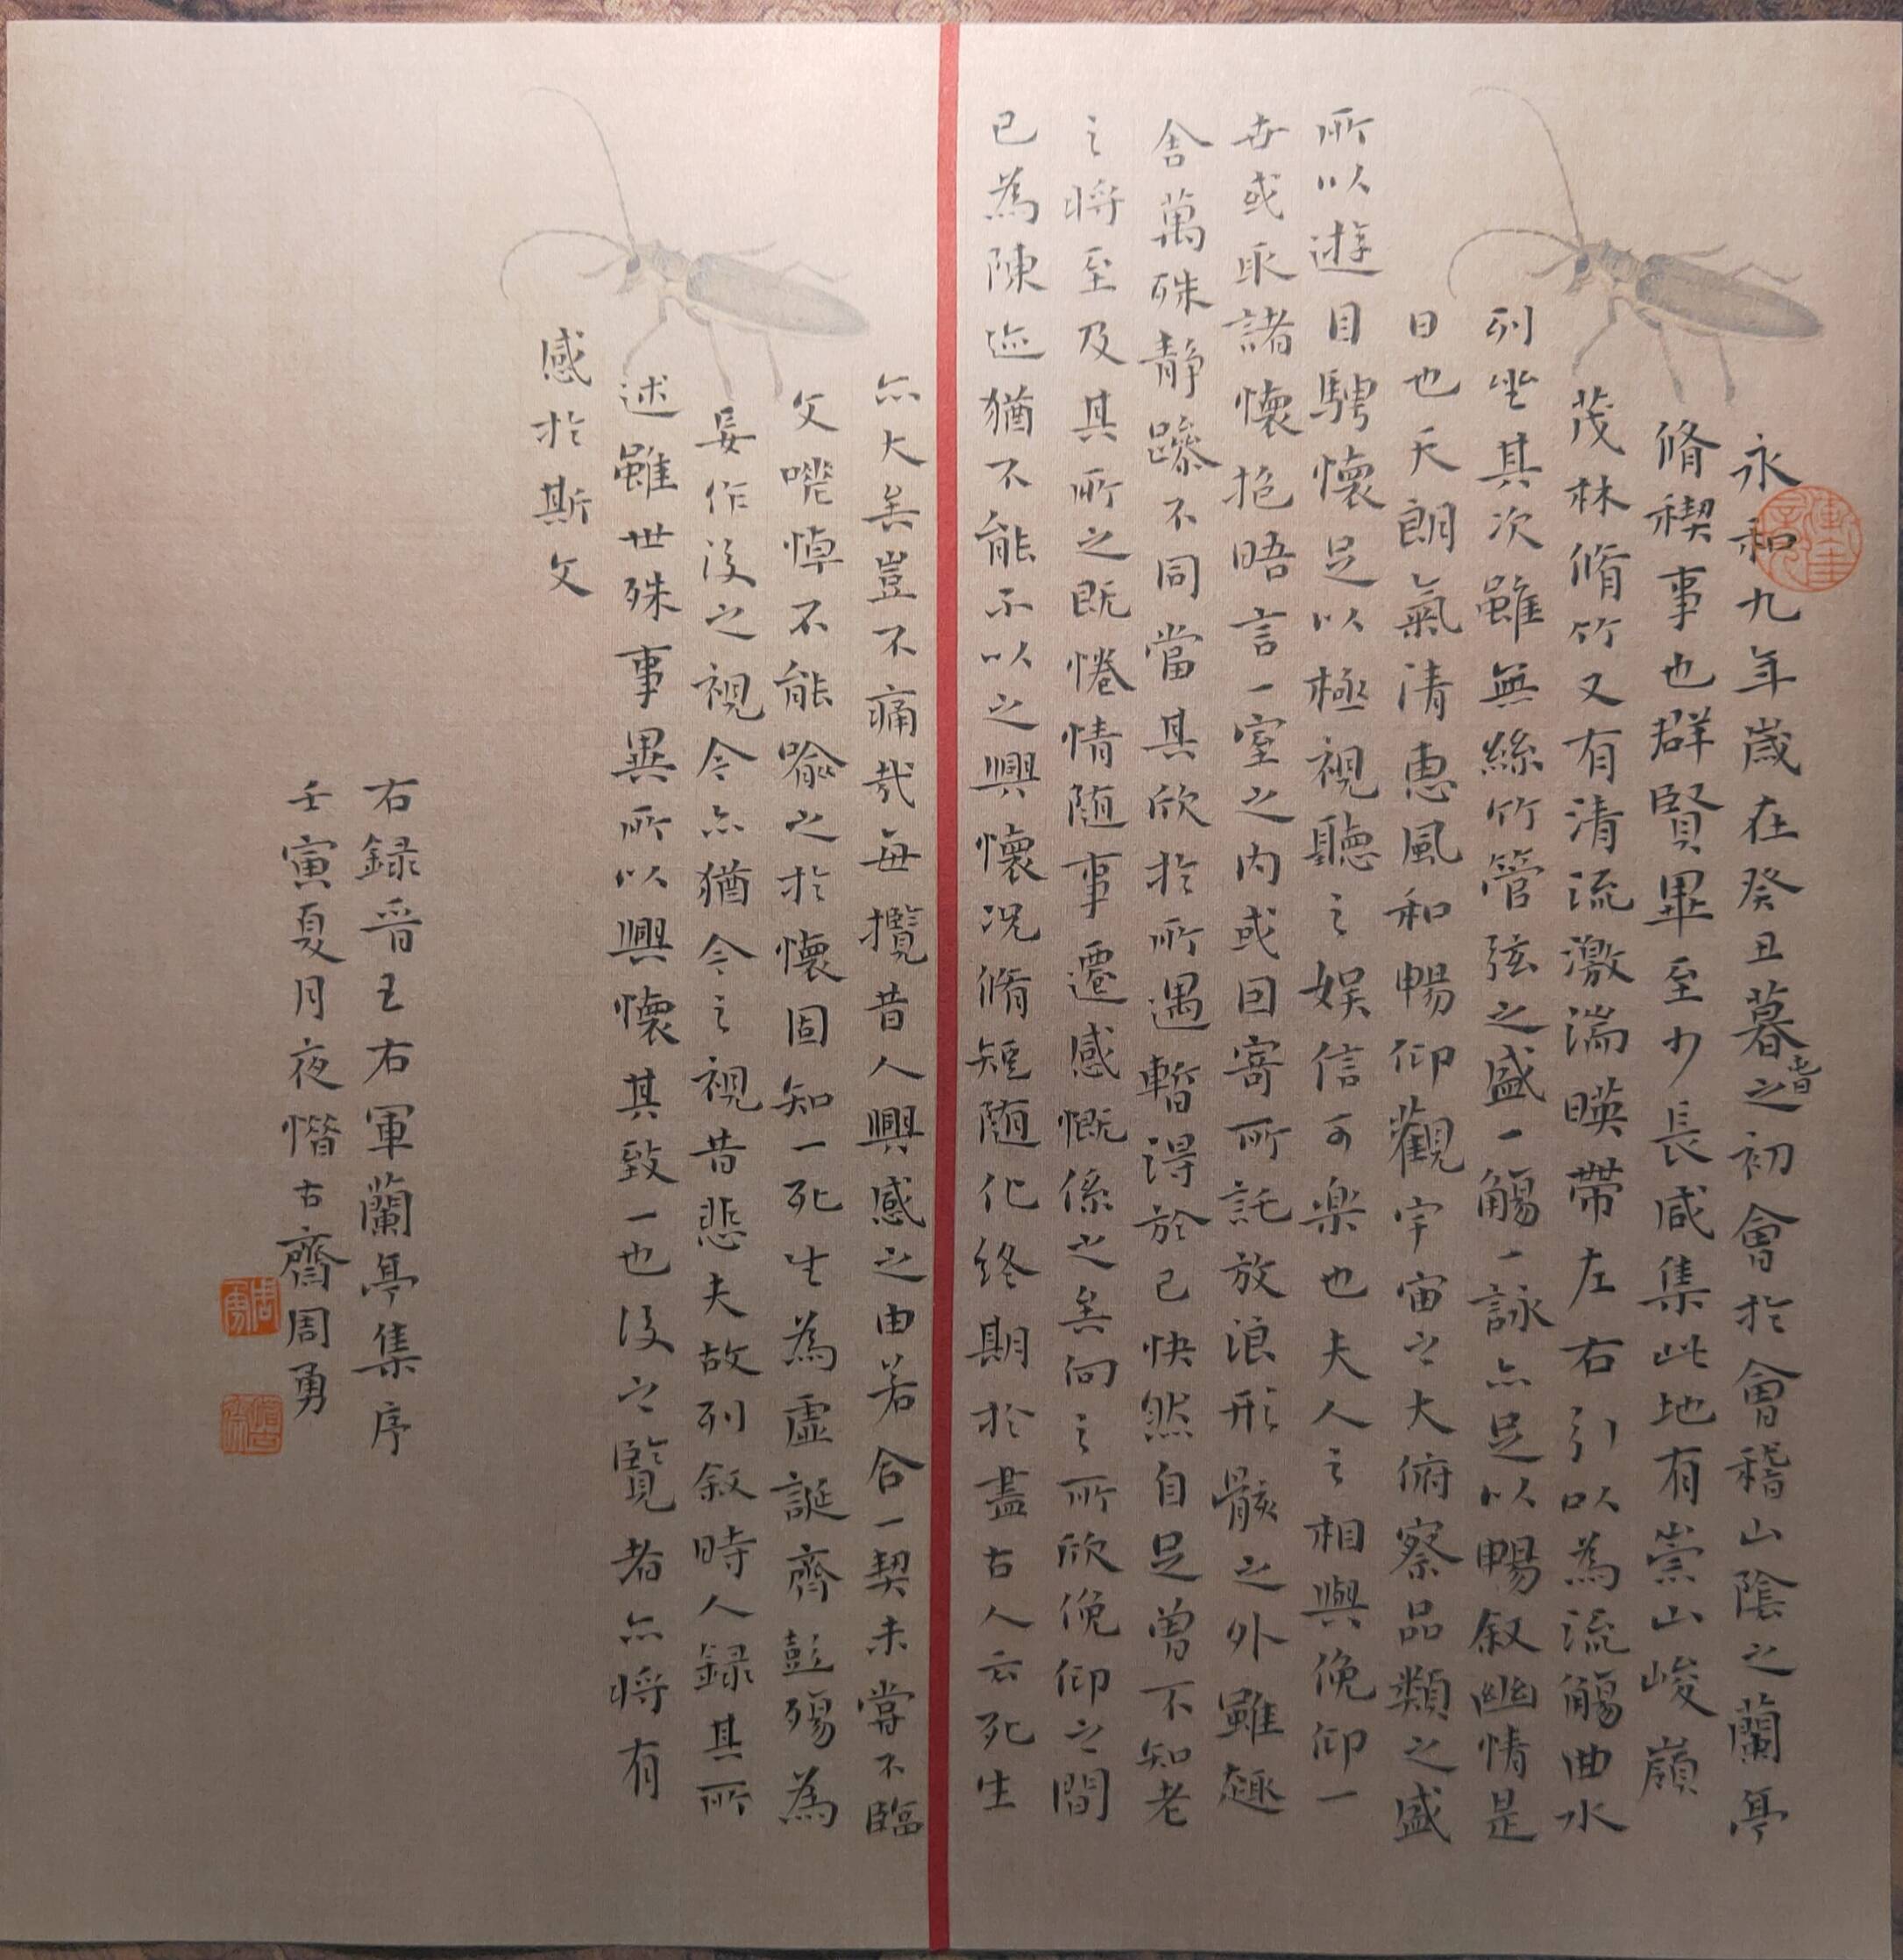 永和九年歲在癸丑暮春之初會於會稽山陰之蘭亭
脩稧事也群賢畢至少長咸集此地有崇山峻嶺
茂林脩竹又有清流激湍暎帶左右引以為流觴曲水
列坐其次雖無絲竹管弦之盛一觴一詠亦足以暢叙幽情是
日也天朗氣清惠風和暢仰觀宇宙之大俯察品類之盛
所以遊目騁懷足以極視聽之娛信可樂也夫人之相與俛仰一
世或取諸懷抱晤言一室之內或因寄所託放浪形骸之外雖趣
舍萬殊靜躁不同當其欣於所遇暫得於己快然自足曾不知老
之將至及其所之既惓情随事遷感慨係之矣向之所欣俛仰之間
已為陳迹猶不能不以之興懷況脩短随化終期於盡古人云死生
亦大矣豈不痛哉每攬昔人興感之由若合一契未嘗不臨
文嗟悼不能喻之於懷固知一死生為虛誕齊彭殤為
妄作後之視今亦猶今之視昔悲夫故列叙時人録其所
述雖世殊事異所以興懷其致一也後之覽者亦將有
感於斯文
右録晉王右軍蘭亭集序
壬寅夏月夜憯古齋周勇
周勇